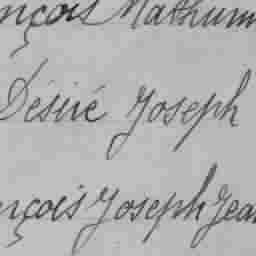 nçois Mathurin
Désiré Joseph
nçois Joseph Jean